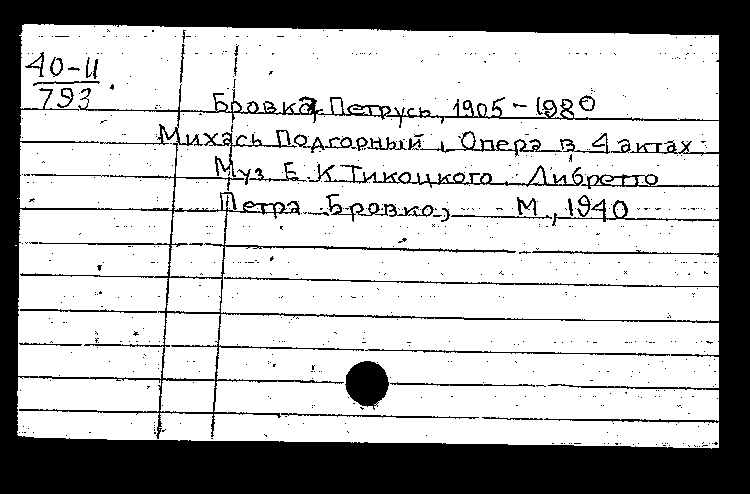 40-II
793
Бровка, Петрусь, 1905-1980
Михась Подгорный. Опера в 4 актах.
Муз. Е.К. Тикоцкого. Либретто
Петра Бровко, М., 1940